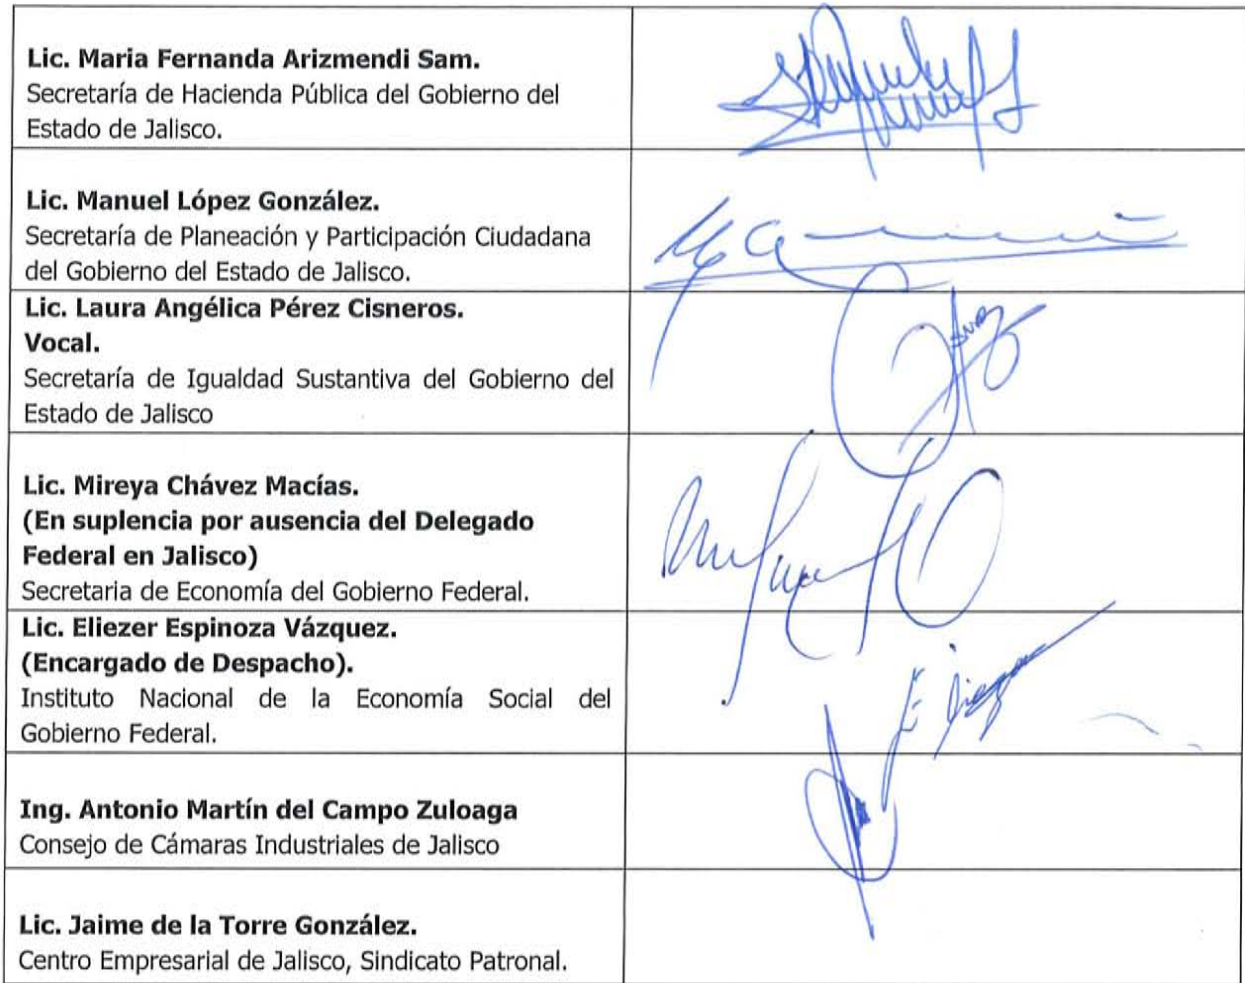 Lic. Maria Fernanda Arizmendi Sam.
Secretaría de Hacienda Pública del Gobierno del
Estado de Jalisco.
Lic. Manuel López González.
Secretaría de Planeación y Participación Ciudadana
del Gobierno del Estado de Jalisco.
Lic. Laura Angélica Pérez Cisneros.
Vocal.
Secretaría de Igualdad Sustantiva del Gobierno del
Estado de Jalisco
Lic. Mireya Chávez Macías.
(En suplencia por ausencia del Delegado
Federal en Jalisco)
Secretaria de Economía del Gobierno Federal.
Lic. Eliezer Espinoza Vázquez.
(Encargado de Despacho).
Instituto Nacional de la Economía Social del
Gobierno Federal.
Ing. Antonio Martín del Campo Zuloaga
Consejo de Cámaras Industriales de Jalisco
Lic. Jaime de la Torre González.
Centro Empresarial de Jalisco, Sindicato Patronal.